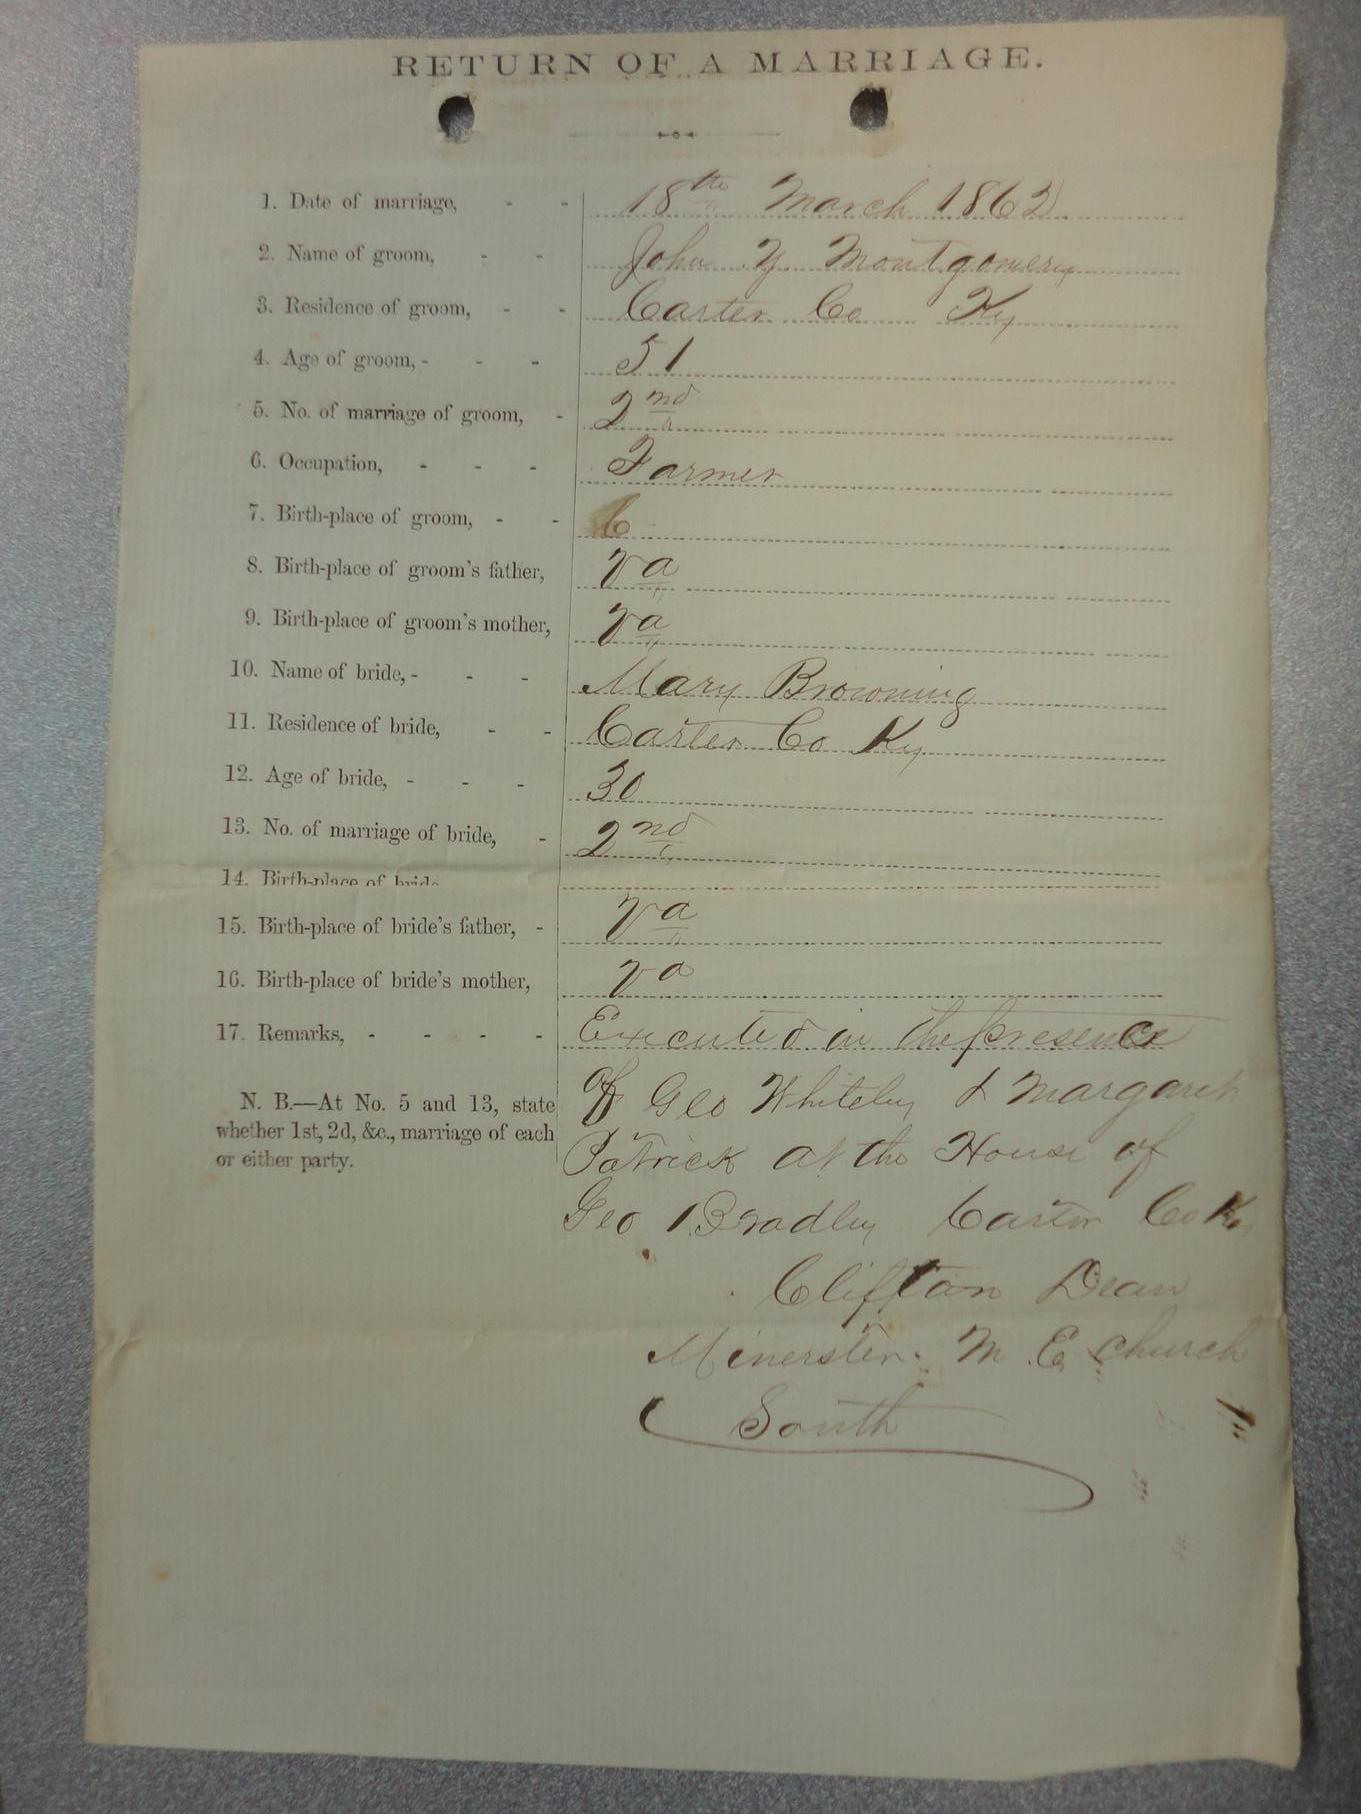 RETURN OF A MARRIAGE.
1. Date of marriage, - - 18th March 1862
2. Name of groom, - - John Y Montgomery
3. Residence of groom, - - Carter Co Ky
4. Age of groom, - - - 51
5. No. of marriage of groom, - 2nd
6. Occupation, - - - Farmer
7. Birth-place of groom, - -
8. Birth-place of groom's father, Va
9. Birth-place of groom's mother, Va
10. Name of bride, - - - Mary Browning
11. Residence of bride, - - Carter Co Ky
12. Age of bride, - - - 30
13. No. of marriage of bride, - 2nd
14. Birth-place of bride
15. Birth-place of bride's father, - Va
16. Birth-place of bride's mother, Va
17. Remarks, - - - - Executed in the presence
of Geo Whiteley & Margaret
Patrick at the House of
Geo Bradley Carter Co Ky
Clifton Dean
Minerster M E Church
South
N. B.—At No. 5 and 13, state
whether 1st, 2d, &c., marriage of each
or either party.